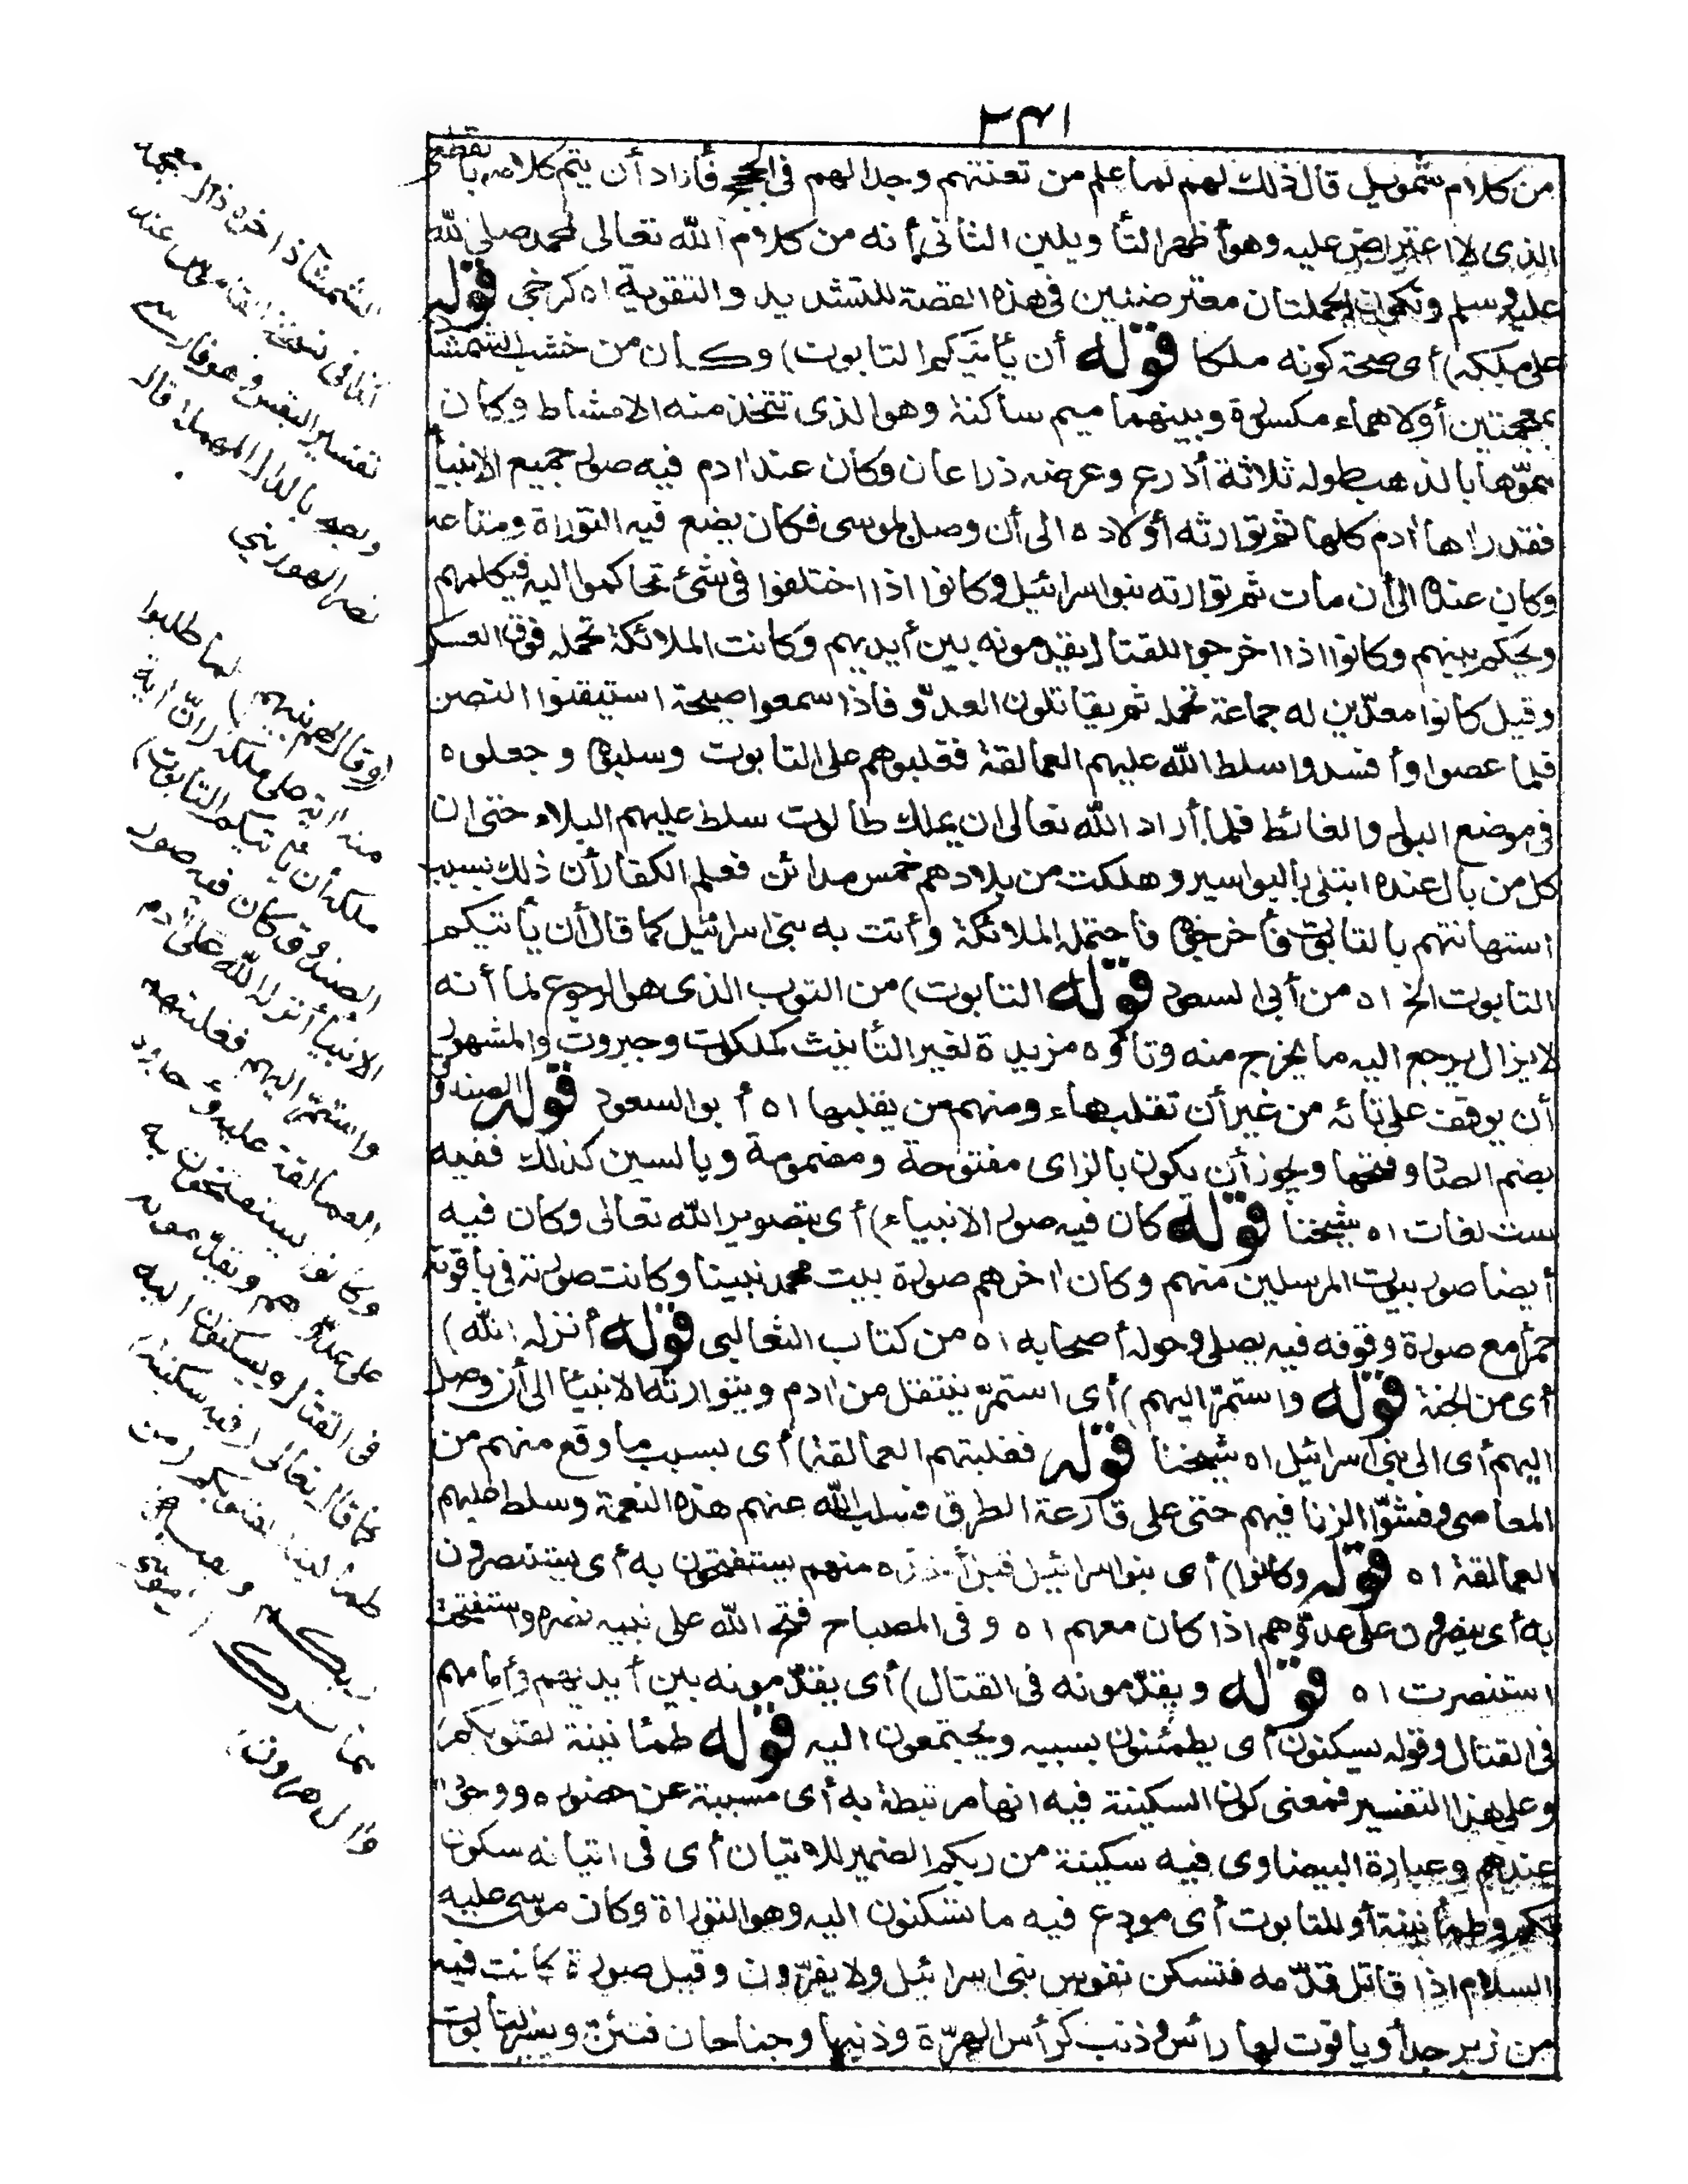 ٢٤١
من كلام شمويل قال ذلك لهم لما علم من تعنتهم وجدالهم في الحجج فأراد أن يتم كلامه بالقطع
الذى لا اعتراض عليه وهو أظهر التأويلين الثانى أنه من كلام الله تعالى لمحمد صلى الله
عليه وسلم وتكون الجملتان معترضتين فى هذه القصة للتشديد والتقوية اه كرخى قوله
على ملكه) أى صحة كونه ملكا قوله أن يأتيكم التابوت) وكان من خشب الشمشاذ
بمعجمتين أولاهما مكسورة وبينهما ميم ساكنة وهو الذى تتخذ منه الامشاط وكان
مموها بالذهب طوله ثلاثة أذرع وعرضه ذراعان وكان عند ادم فيه صور جميع الانبيا
فقد راها ادم كلها ثم توارثه أولاده الى أن وصل لموسى فكان يضع فيه التوراة ومتاعه
وكان عنده الى أن مات ثم توارثه بنواسرائيل وكانوا اذا اختلفوا فى شئ تحاكموا اليه فيكلمهم
ويحكم بينهم وكانوا اذا خرجوا للقتال يقدمونه بين أيديهم وكانت الملائكة تحمله فوق العسكر
وقيل كانوا معدين له جماعة تحمله ثم يقاتلون العدو فاذا سمعوا صيحة استيقنوا النصر
فلما عصوا وأفسدوا سلط الله عليهم العمالقة فغلبوهم على التابوت وسلبوه وجعلوه
فى موضع البول والغائط فلما أراد الله تعالى ان يملك طالوت سلط عليهم البلاء حتى ان
كل من بال عنده ابتلى بالبواسير وهلكت من بلادهم خمس مدائن فعلم الكفار أن ذلك بسبب
استهانتهم بالتابوت فأخرجوه فاحتملته الملائكة وأتت به بنى اسرائيل كما قال أن يأتيكم
التابوت الخ اه من أبى السعود قوله التابوت) من التوب الذى هو الرجوع لما أنه
لايزال يرجع اليه ما يخرج منه وتاؤه مزيدة لغير التأنيث كملكوت وجبروت والمشهور
أن يوقف على تائه من غير أن تقلب هاء ومنهم من يقلبها اه أبو السعود قوله الصندوق
بضم الصاد وفتحها ويجوز أن يكون بالزاى مفتوحة ومضمومة وبالسين كذلك ففيه
ست لغات اه شيخنا قوله كان فيه صور الانبياء) أى بتصوير الله تعالى وكان فيه
أيضا صور بيوت المرسلين منهم وكان اخرهم صورة بيت محمد نبينا وكانت صورته فى ياقوتة
حمرا مع صورة وقوفه فيه يصلى وحوله أصحابه اه من كتاب الثعالبى قوله أنزله الله)
أى من الجنة قوله واستمر اليهم) أى استمر ينتقل من ادم ويتوارثه الانبيا الى أن وصل
اليهم أى الى بنى اسرائيل اه شيخنا قوله فغلبتهم العمالقة) أى بسبب ما وقع منهم من
المعاصى وفشوا الزنا فيهم حتى على قارعة الطرق فسلب الله عنهم هذه النعمة وسلط عليهم
العمالقة اه قوله وكانوا) أى بنواسرائيل قبل أخذه منهم يستفتحون به أى يستنصرون
به أى ينصرون على عدوهم اذا كان معهم اه وفى المصباح فتح الله على نبيه نصره واستفتحت
استنصرت اه قوله ويقدمونه فى القتال) أى يقدمونه بين أيديهم وأمامهم
فى القتال وقوله يسكنون أى يطمئنون بسببه ويجتمعون اليه قوله طمأنينة لقلوبكم)
وعلى هذا التفسير فمعنى كون السكينة فيه انها مرتبطة به أى مسببة عن حضوره ووجوده
عندهم وعبارة البيضاوى فيه سكينة من ربكم الضمير للاتيان أى فى اتيانه سكون
لكم وطمأنينة أو للتابوت أى مودع فيه ما تسكنون اليه وهو التوراة وكان موسى عليه
السلام اذا قاتل قدمه فتسكن نفوس بنى اسرائيل ولا يفرون وقيل صورة كانت فيه
من زبرجد أو ياقوت لها رأس وذنب كرأس الهرة وذنبها وجناحان فتئن ويسير التابوت
الشمشاذ اخره ذال معجمة
كذا فى نسخة القاموس عند
تفسير البقس وهو فارسى
وبعضه بالدال المهملة قاله
نصر الهورينى
(وقال لهم نبيهم) لما طلبوا
منه اية على ملكه (ان اية
ملكه أن يأتيكم التابوت)
الصندوق كان فيه صور
الانبيا أنزله الله على ادم
واستمر اليهم فغلبتهم
العمالقة عليه وأخذوه
وكانوا يستفتحون به
على عدوهم ويقدمونه
فى القتال ويسكنون اليه
كما قال تعالى (فيه سكينة)
طمأنينة لقلوبكم (من
ربكم وبقية
مما ترك ال موسى
وال هرون)